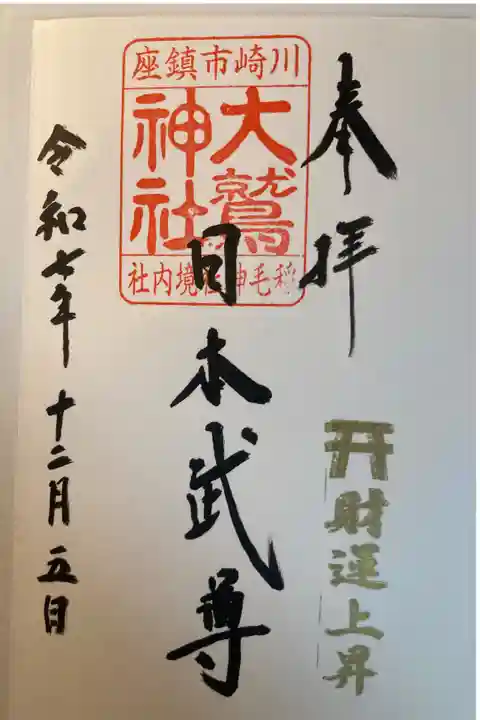 奉拝
財運上昇
川崎市鎮座
大鷲
神社
稲毛神社境内社
日本武尊
令和七年 十二月 五日